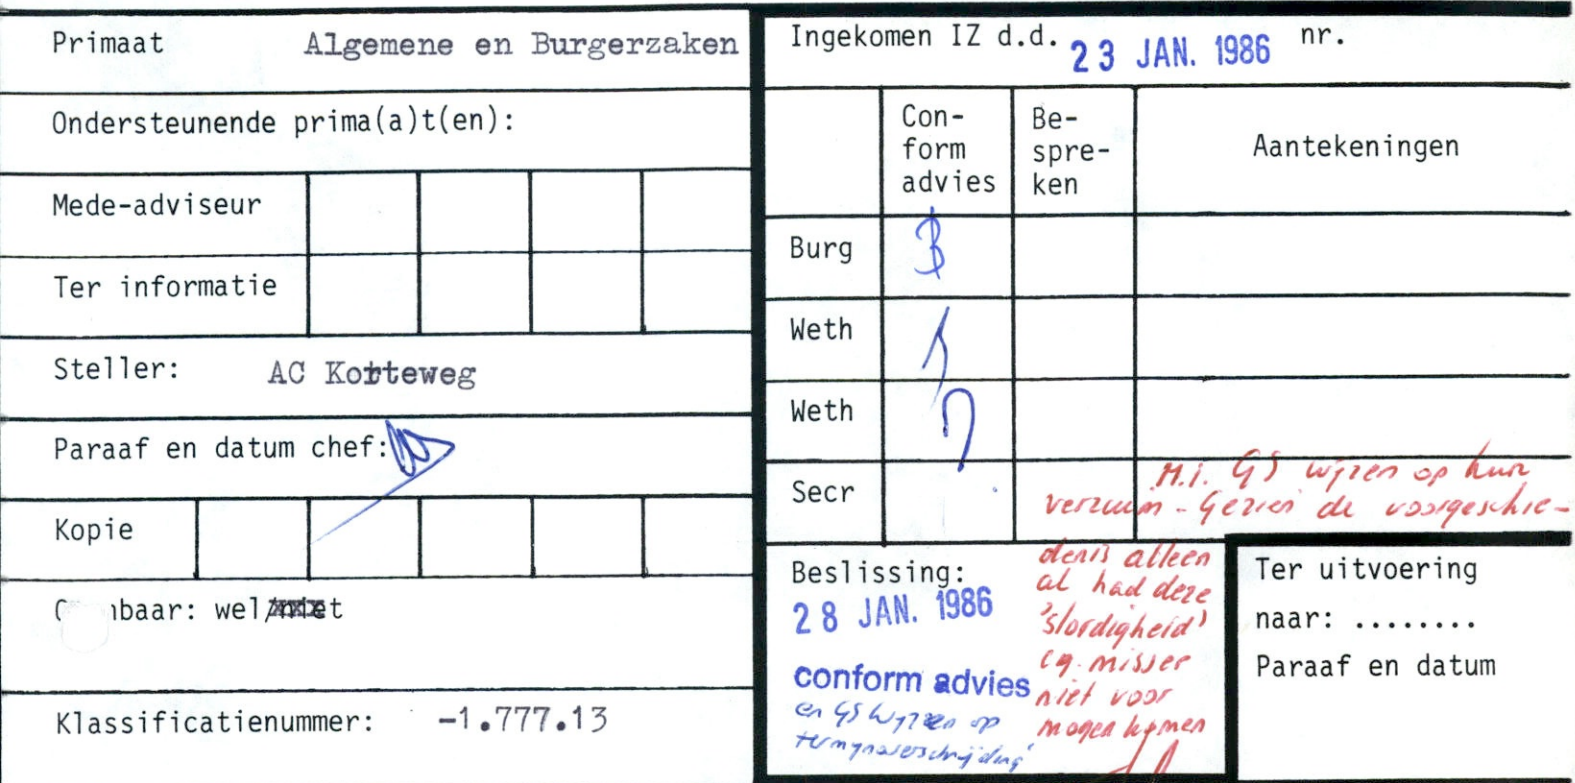 Primaat Algemene en Burgerzaken
Ondersteunende prima(a)t(en):
Mede-adviseur
Ter informatie
Steller: AC Korteweg
Paraaf en datum chef:
Kopie
baar: wel/niet
Klassificatienummer: -1.777.13
Ingekomen IZ d.d. 23 JAN. 1986 nr.
Con-
form
advies
Be-
spre-
ken
Aantekeningen
Burg
Weth
Weth
Secr
M.i. GS wijzen op hun
verzuim - Gezien de voorgeschie-
denis alleen
al had deze
'slordigheid'
cq. misser
niet voor
mogen komen
Beslissing:
28 JAN. 1986
conform advies
en GS wijzen op
termijnoverschrijding
Ter uitvoering
naar: ........
Paraaf en datum